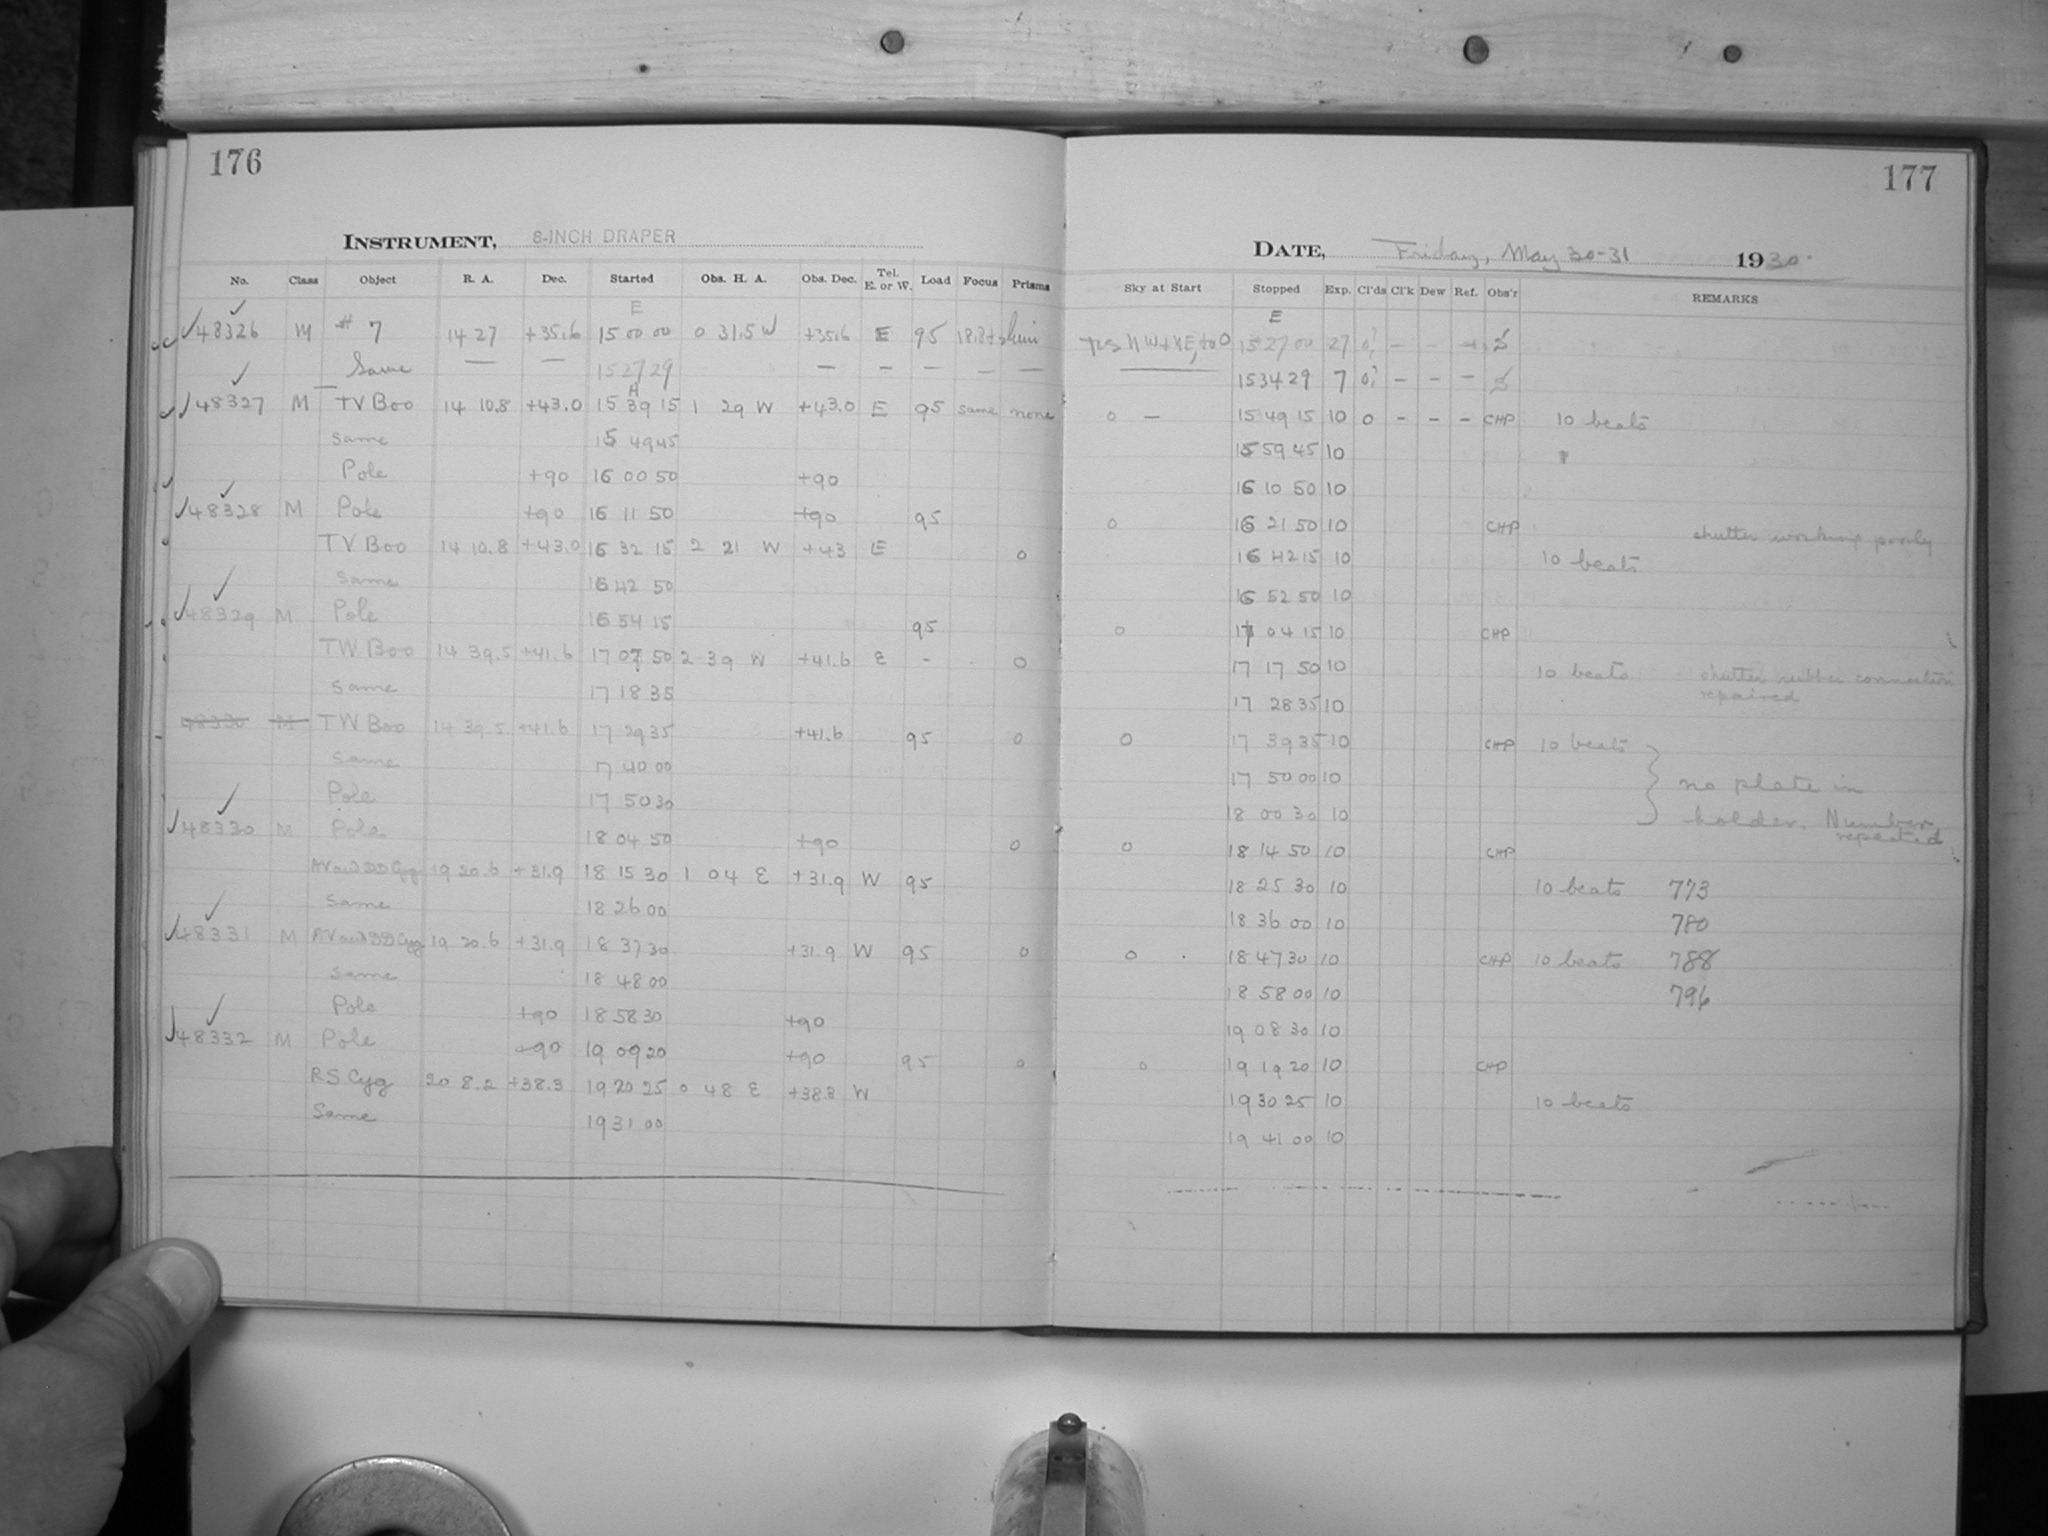 176
INSTRUMENT, 8-INCH DRAPER
No. Class Object R. A. Dec. Started Obs. H. A. Obs. Dec. Tel. E. or W. Load Focus Prisms
E
48326 M # 7 14 27 +35.6 15 00 00 0 31.5 W +35.6 E 95
Same — — 15 27 29 — — — — —
A
48327 M TV Boo 14 10.8 +43.0 15 39 15 1 29 W +43.0 E 95 same none
same 15 49 45
Pole +90 16 00 50 +90
48328 M Pole +90 16 11 50 +90 95
TV Boo 14 10.8 +43.0 16 32 15 2 21 W +43 E 0
same 16 42 50
48329 M Pole 16 54 15 95
TW Boo 14 39.5 +41.6 17 07 50 2 39 W +41.6 E - 0
same 17 18 35
48330 M TW Boo 14 39.5 +41.6 17 29 35 +41.6 95 0
same 17 40 00
Pole 17 50 30
48330 M Pole 18 04 50 +90 0
AV and DD Cyg 19 20.6 +31.9 18 15 30 1 04 E +31.9 W 95
same 18 26 00
48331 M AV and DD Cyg 19 20.6 +31.9 18 37 30 +31.9 W 95 0
same 18 48 00
Pole +90 18 58 30 +90
48332 M Pole +90 19 09 20 +90 95 0
RS Cyg 20 8.2 +38.3 19 20 25 0 48 E +38.3 W
Same 19 31 00
177
DATE, Friday, May 30-31 1930.
Sky at Start Stopped Exp. Cl'ds Cl'k Dew Ref. Obs'r REMARKS
E
15 27 00 27 0? – – –
15 34 29 7 0? – – –
0 — 15 49 15 10 0 – – – CHP 10 beats
15 59 45 10
16 10 50 10
0 16 21 50 10 CHP shutter working poorly
16 42 15 10 10 beats
16 52 50 10
0 17 04 15 10 CHP
17 17 50 10 10 beats shutter rubber connection
repaired
17 28 35 10
0 17 39 35 10 CHP 10 beats
17 50 00 10 no plate in
18 00 30 10 holder. Number
repeated
0 18 14 50 10 CHP
18 25 30 10 10 beats 773
18 36 00 10 780
0 18 47 30 10 CHP 10 beats 788
18 58 00 10 796
19 08 30 10
0 19 19 20 10 CHP
19 30 25 10 10 beats
19 41 00 10